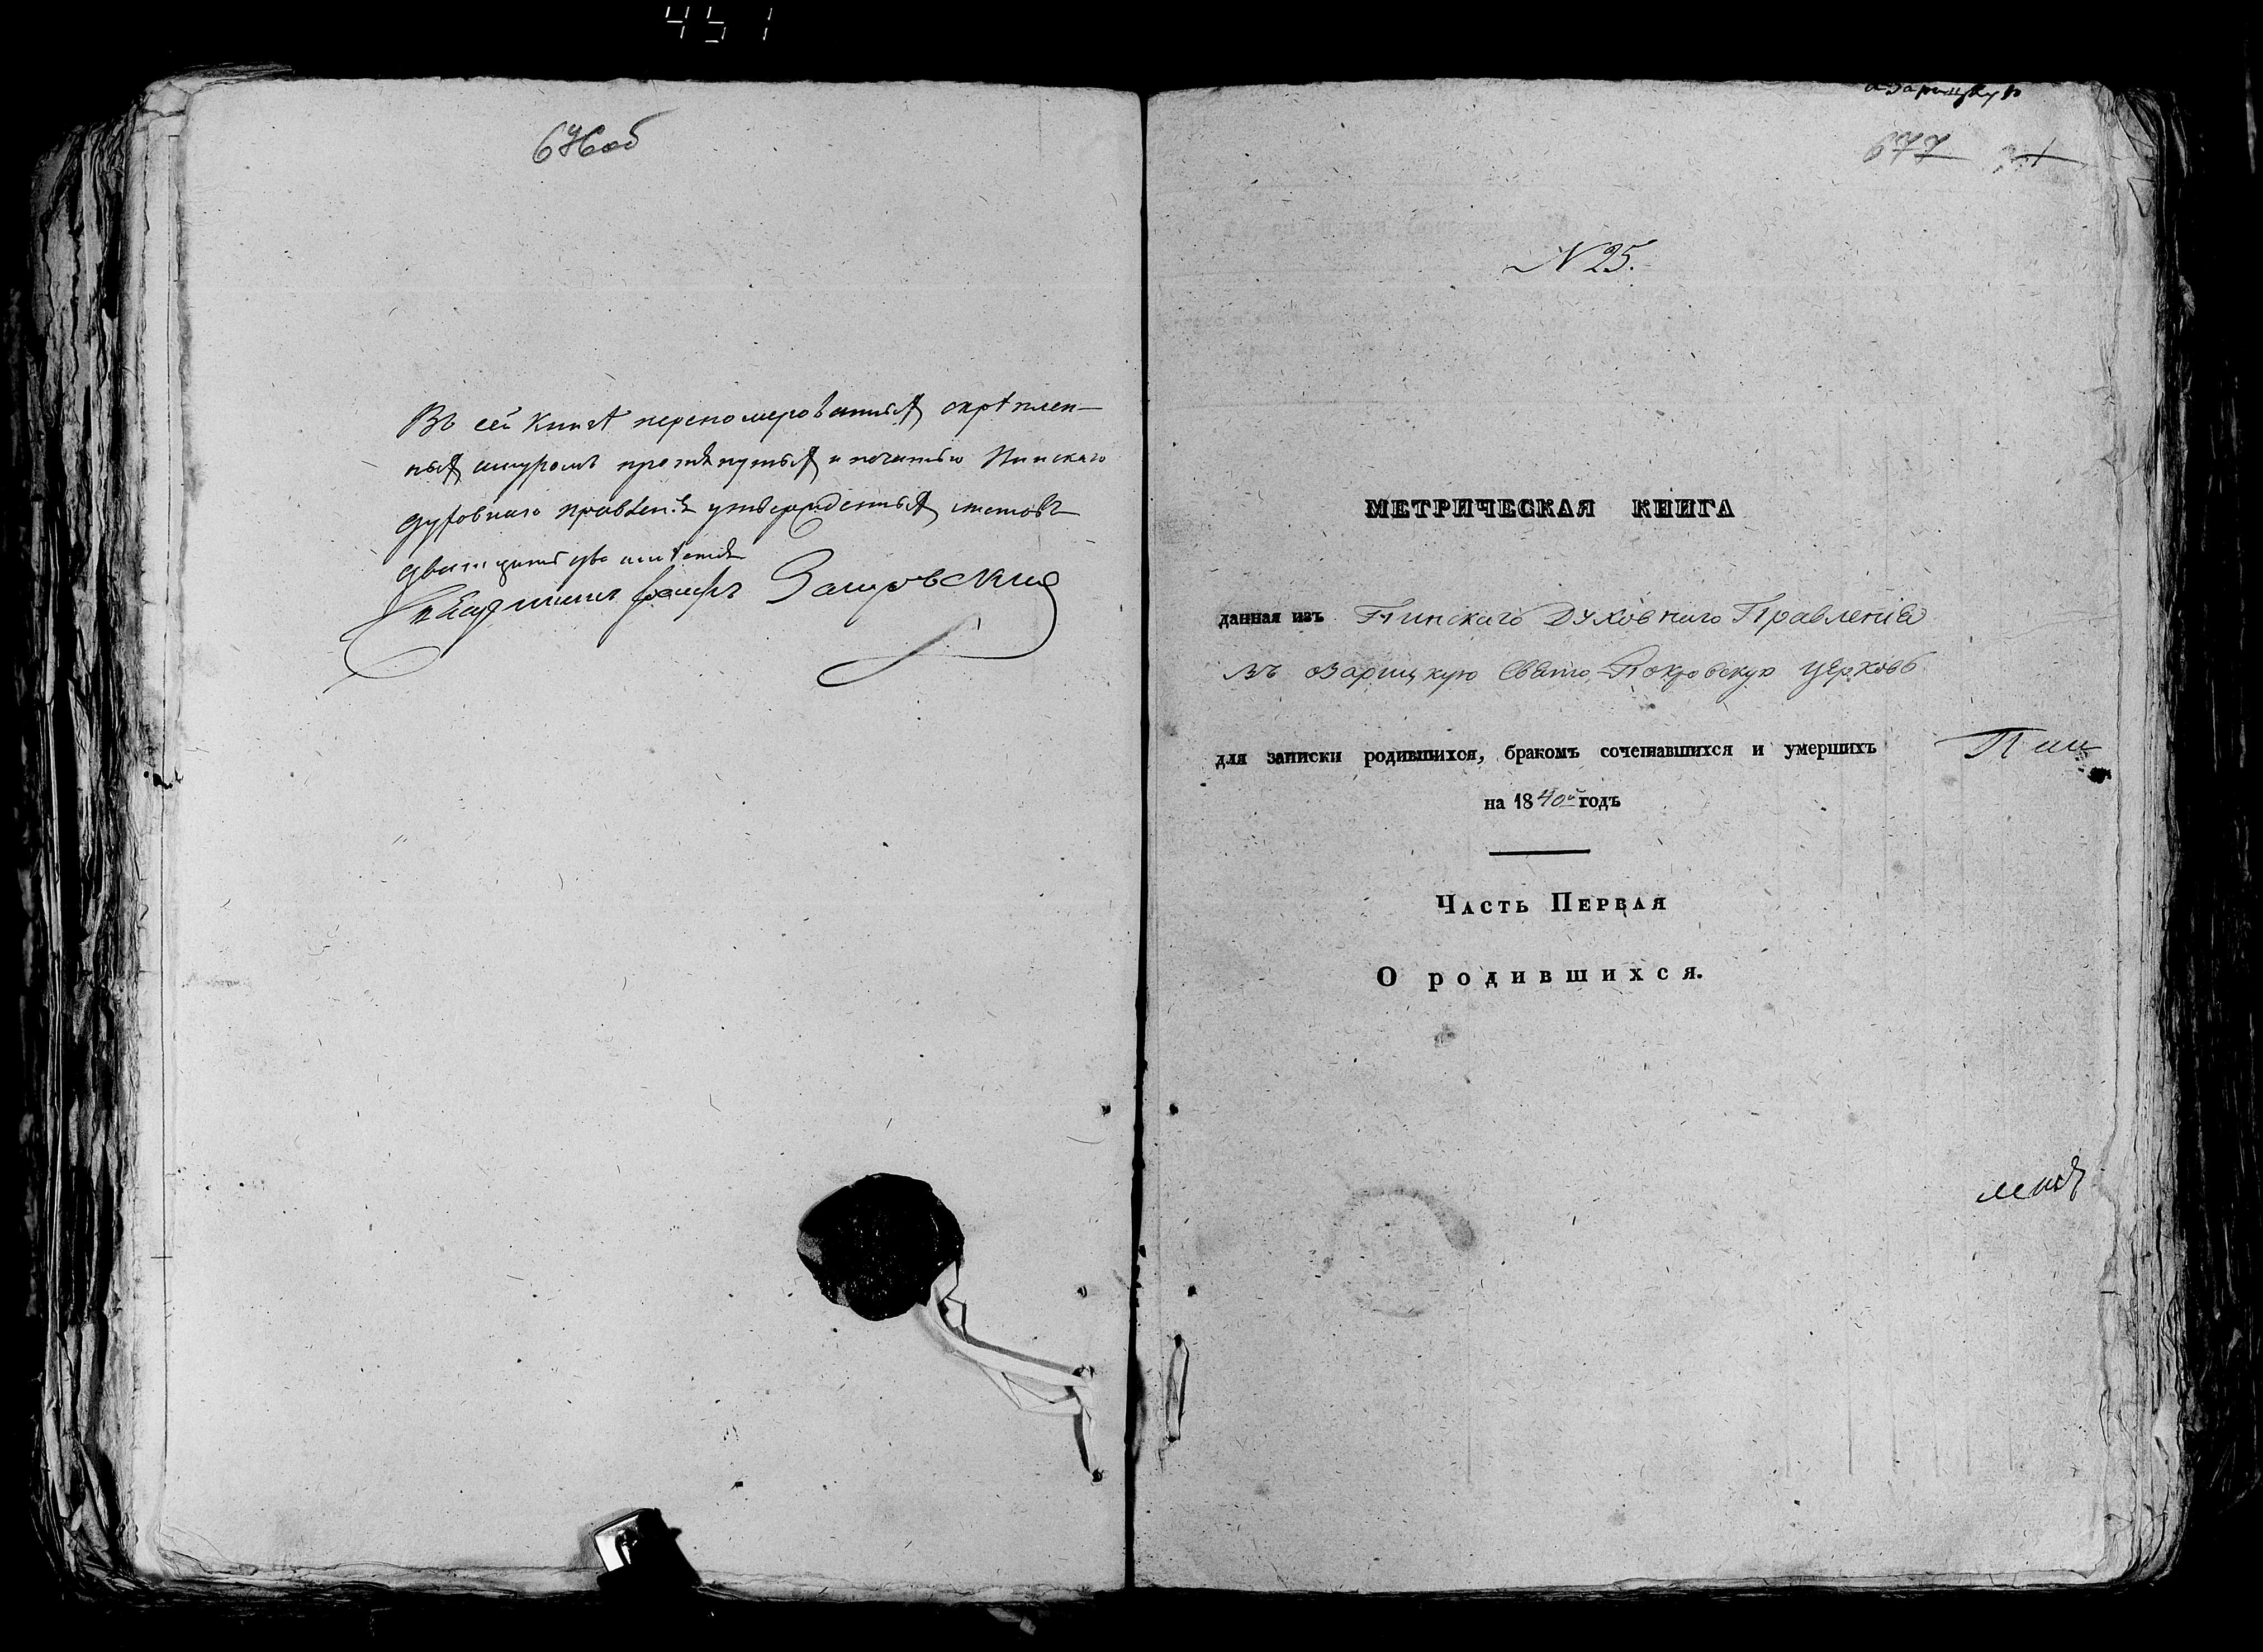 451
676об
Въ сей Книгѣ перенумерованныхъ скрѣплен-
ныхъ шнуромъ протянутыхъ и печатью Пинскаго
духовнаго правленія утвержденныхъ листовъ
двадцать два
677
N 25.
МЕТРИЧЕСКАЯ КНИГА
данная изъ Пинскаго Духовнаго Правленія
въ Озарицкую Свято Покровскую Церковь
для записки родившихся, бракомъ сочетавшихся и умершихъ
Пин
на 1840й годъ
Часть Первая
О родившихся.